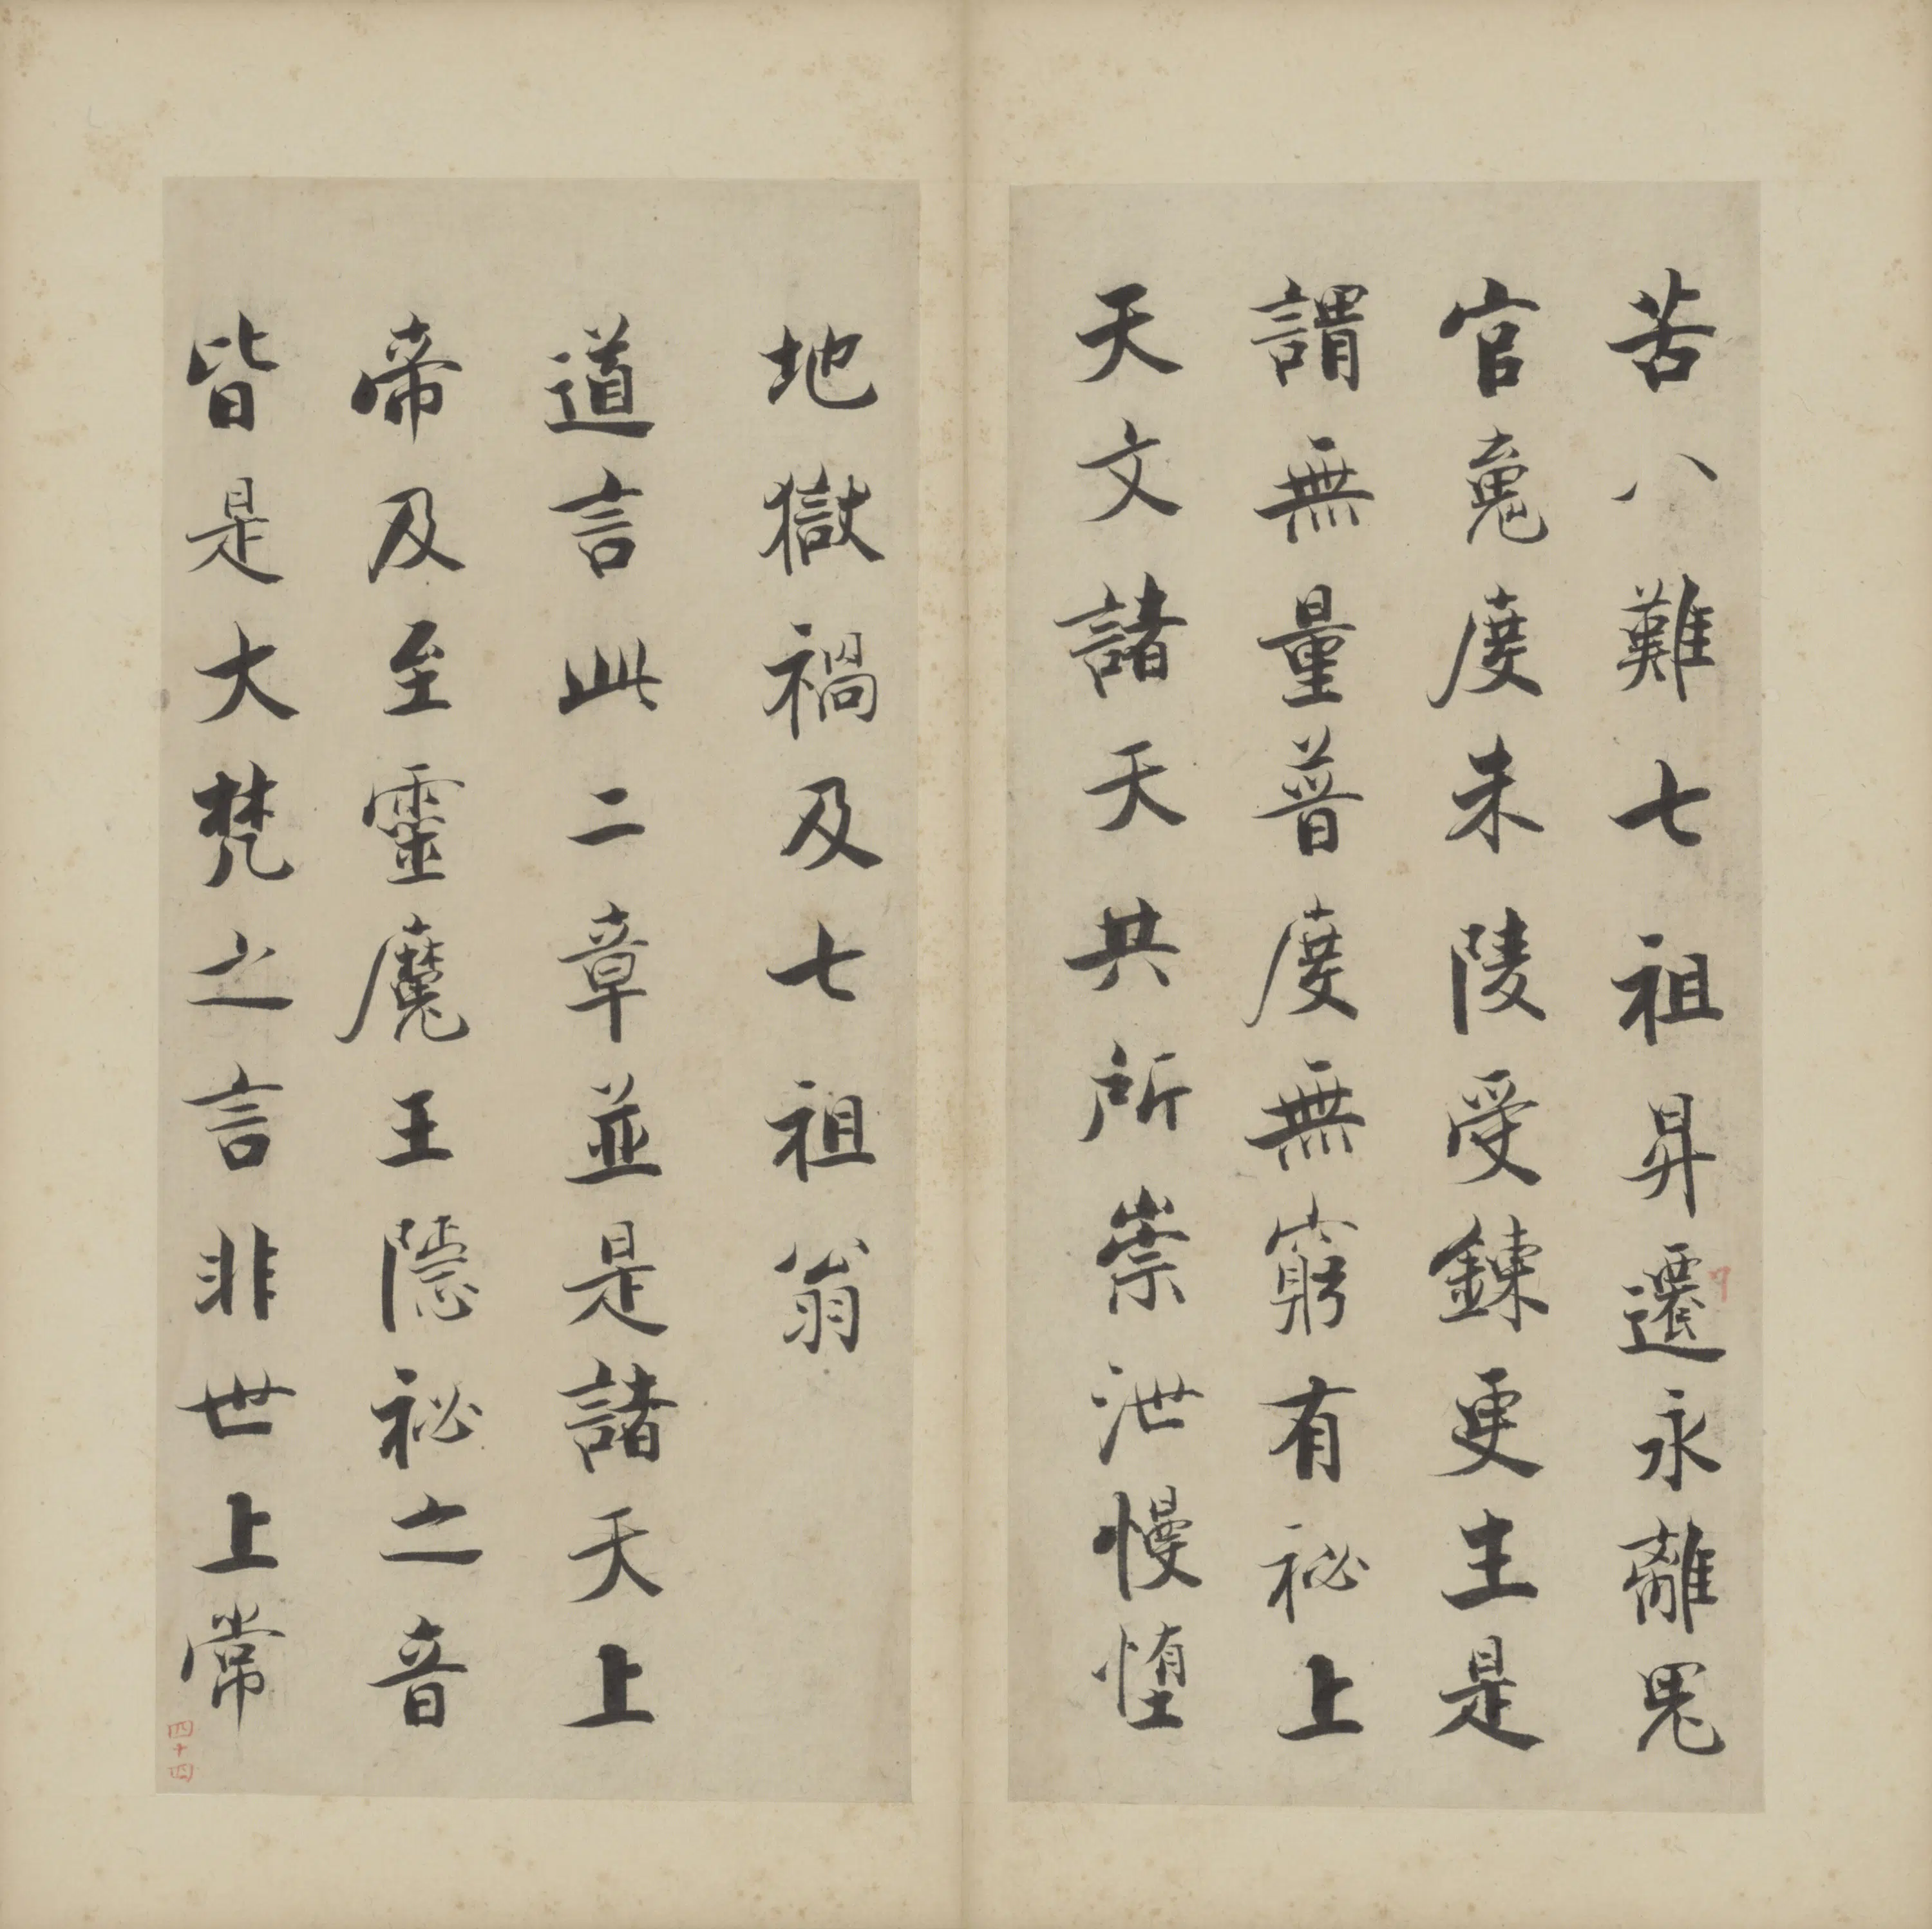 苦八難七祖昇遷永離鬼
官䰟度朱陵受鍊更生是
謂無量普度無窮有祕上
天文諸天共所崇泄慢墮
地獄禍及七祖翁
道言此二章並是諸天上
帝及至靈魔王隱祕之音
皆是大梵之言非世上常
四十四